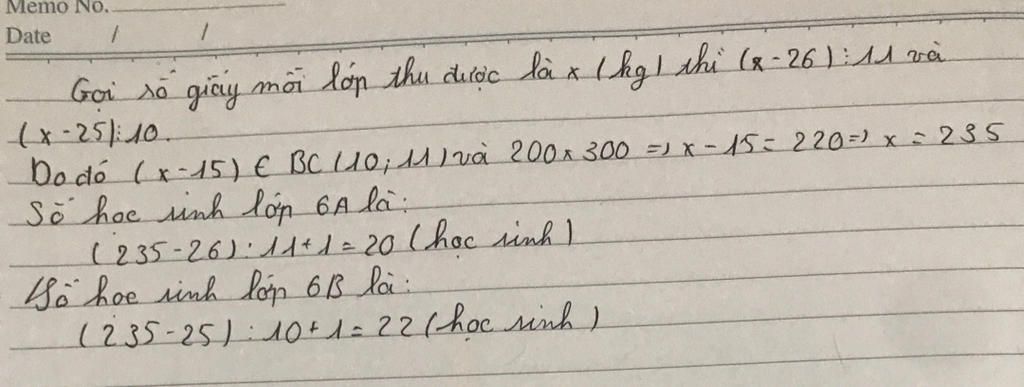 Memo No.
Date / /
Gọi số giấy mỗi lớp thu được là x (kg) thì (x-26):11 và
(x-25):10.
Do dó (x-15) € BC (10;11) và 200x300 => x-15= 220=> x = 235
Số học sinh lớp 6A là:
(235-26):11+1=20 (học sinh)
Số học sinh lớp 6B là:
(235-25):10+1=22 (học sinh)